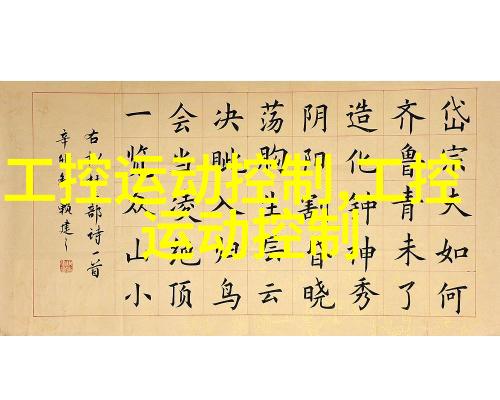 工控运动控制,工控
运动控制
岱宗夫如何
齐鲁青未了
造化钟神秀
阴阳割昏晓
荡胸生层云
决眦入归鸟
会当凌绝顶
一览众山小
右 诗一首
辛卯 赖建